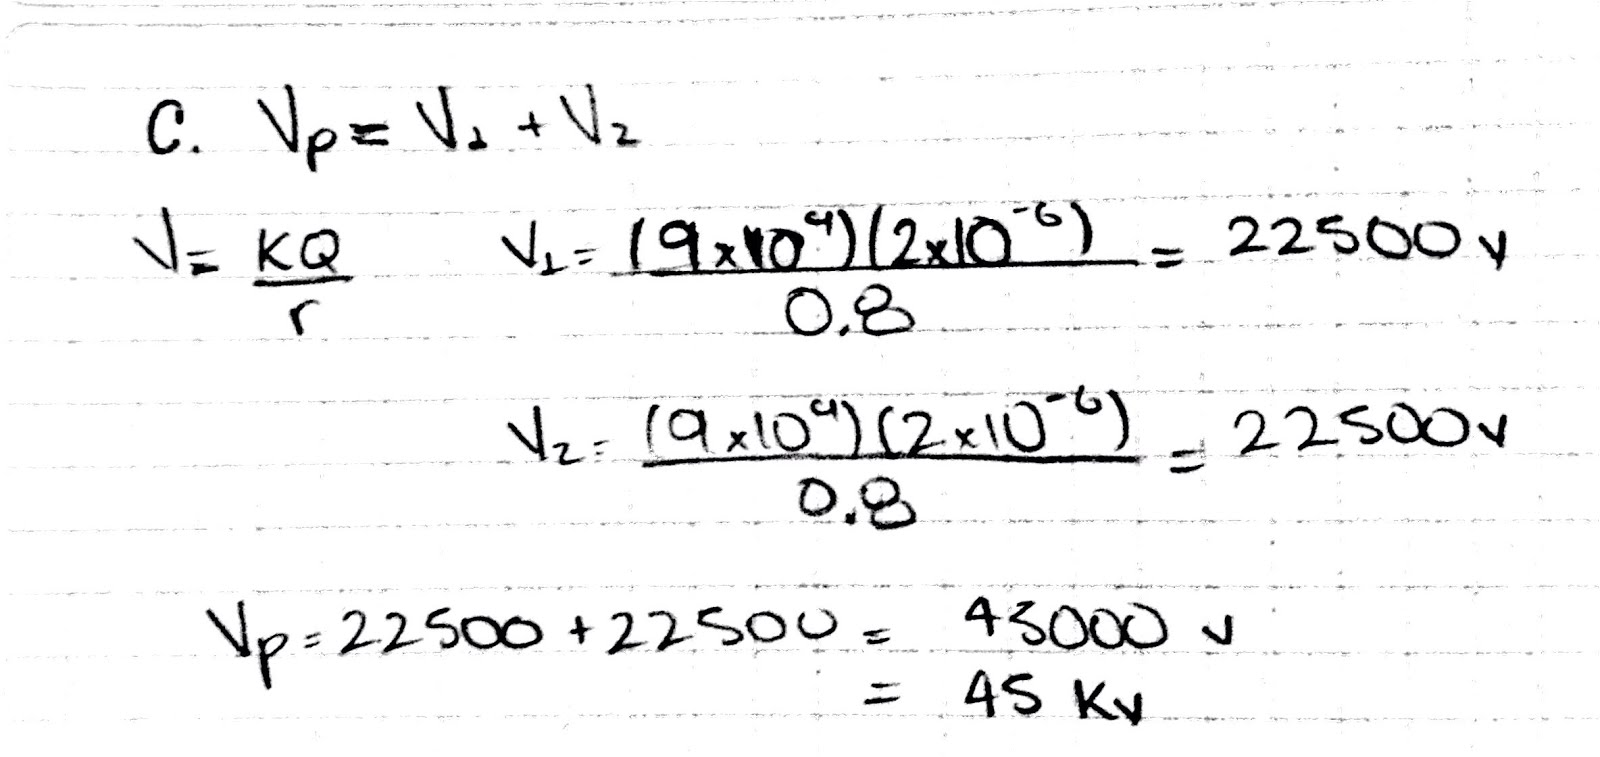 C. Vp = V₁ + V₂
V = KQ/r V₁ = (9×10⁹)(2×10⁻⁶)/0.8 = 22500 v
V₂ = (9×10⁹)(2×10⁻⁶)/0.8 = 22500 v
Vp = 22500 + 22500 = 45000 v
= 45 Kv